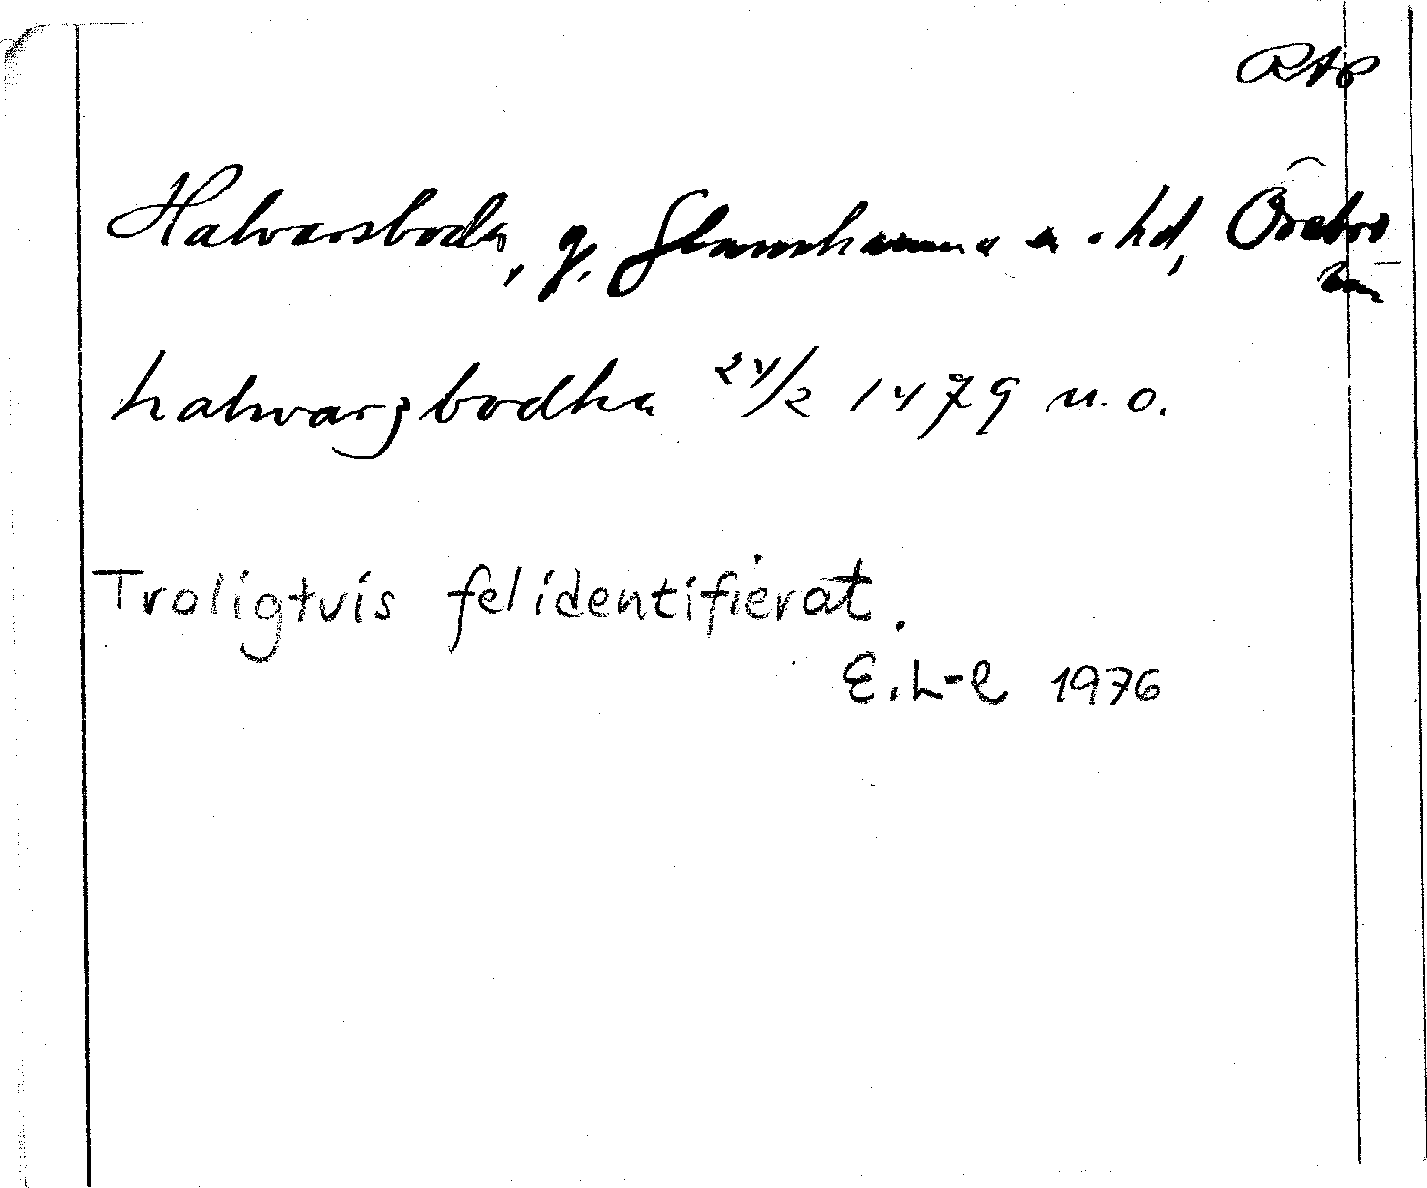 RAP
Halvarsboda, g, Glanshammars hd, Örebro
län
halwarzbodha 24/2 1479 u.o.
Troligtvis felidentifierat.
E.L-l 1976